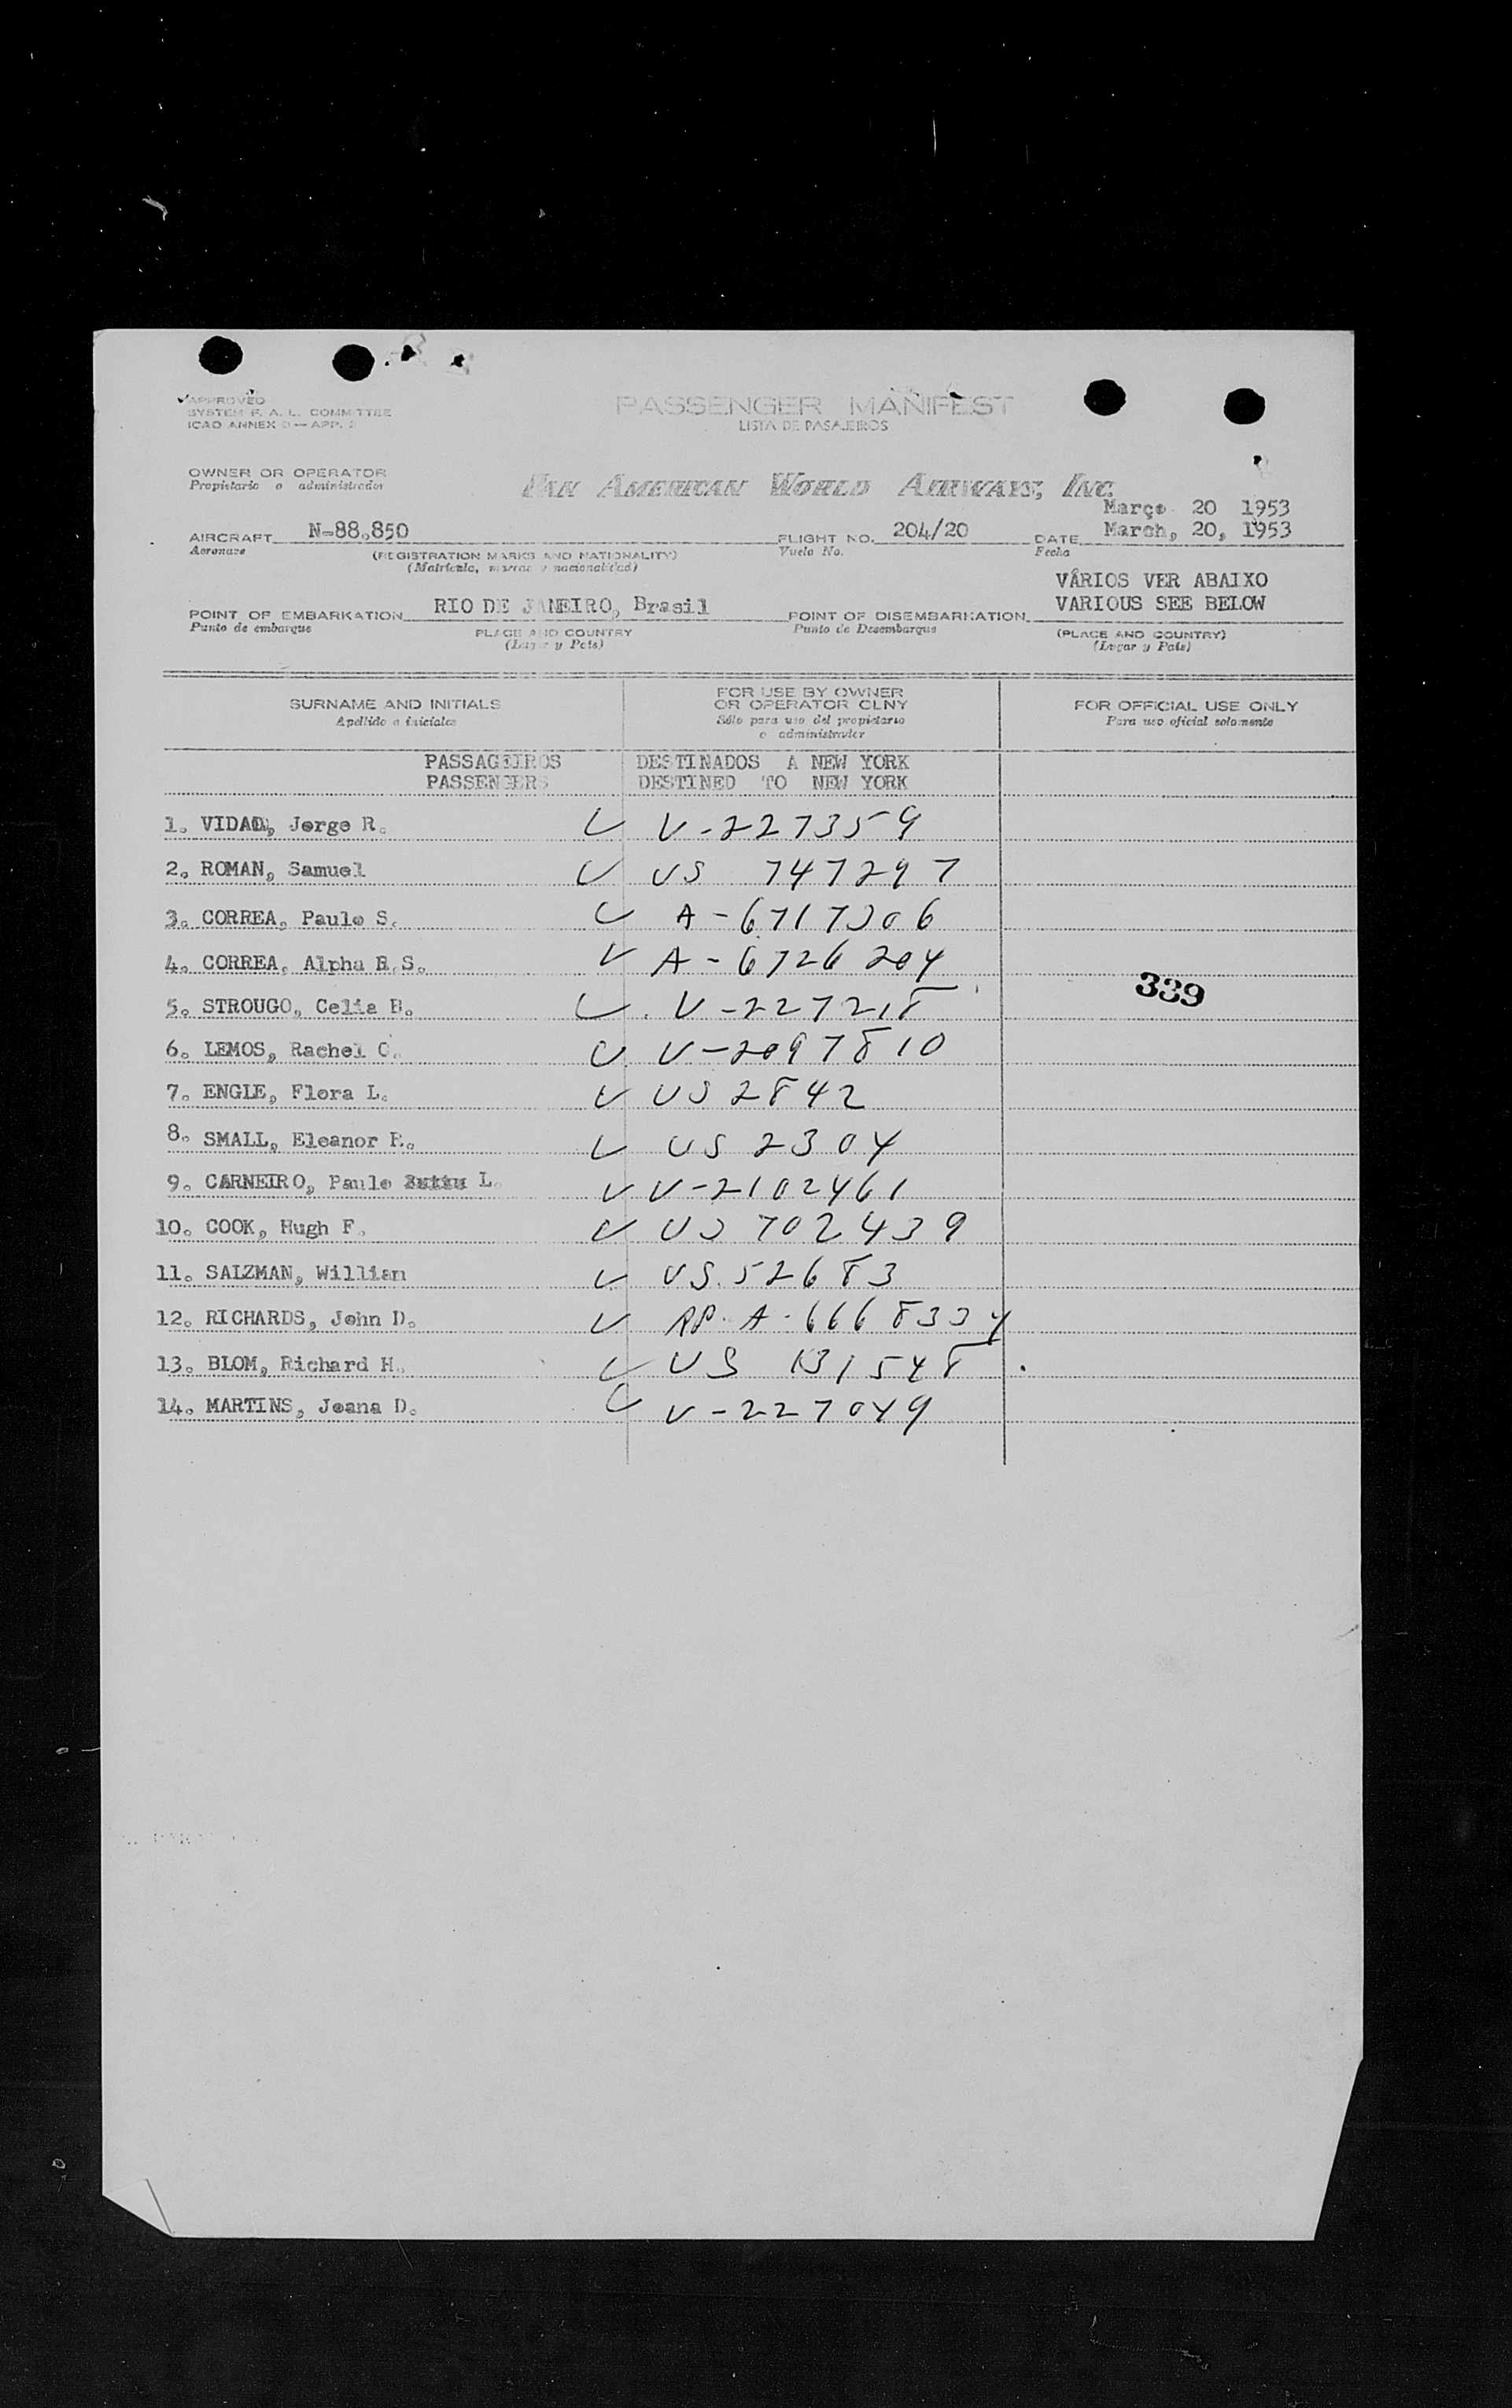 APPROVED
SYSTEM F. A. L. COMMITTEE
ICAO ANNEX 9 — APP. 2
PASSENGER MANIFEST
LISTA DE PASAJEIROS
OWNER OR OPERATOR
Propietario o administrador
PAN AMERICAN WORLD AIRWAYS, INC.
Março 20 1953
AIRCRAFT N-88,850 FLIGHT NO. 204/20 DATE March, 20, 1953
Aeronave (REGISTRATION MARKS AND NATIONALITY) Vuelo No. Fecha
(Matrícula, marcas y nacionalidad)
VÁRIOS VER ABAIXO
POINT OF EMBARKATION RIO DE JANEIRO, Brasil POINT OF DISEMBARKATION VARIOUS SEE BELOW
Punto de embarque PLACE AND COUNTRY Punto de Desembarque (PLACE AND COUNTRY)
(Lugar y País) (Lugar y País)
SURNAME AND INITIALS
Apellido e iniciales
FOR USE BY OWNER
OR OPERATOR ONLY
Sólo para uso del propietario
o administrador
FOR OFFICIAL USE ONLY
Para uso oficial solamente
PASSAGEIROS DESTINADOS A NEW YORK
PASSENGERS DESTINED TO NEW YORK
1. VIDAL, Jorge R. V-227359
2. ROMAN, Samuel US 747297
3. CORREA, Paulo S. A-6717306
4. CORREA, Alpha R.S. A-6726204
339
5. STROUGO, Celia B. V-227218
6. LEMOS, Rachel C. V-2097810
7. ENGLE, Flora L. US 2842
8. SMALL, Eleanor R. US 2304
9. CARNEIRO, Paulo L. V-2102461
10. COOK, Hugh F. US 702439
11. SALZMAN, William US 52683
12. RICHARDS, John D. RP-A-6668334
13. BLOM, Richard H. US 131548
14. MARTINS, Joana D. V-227049